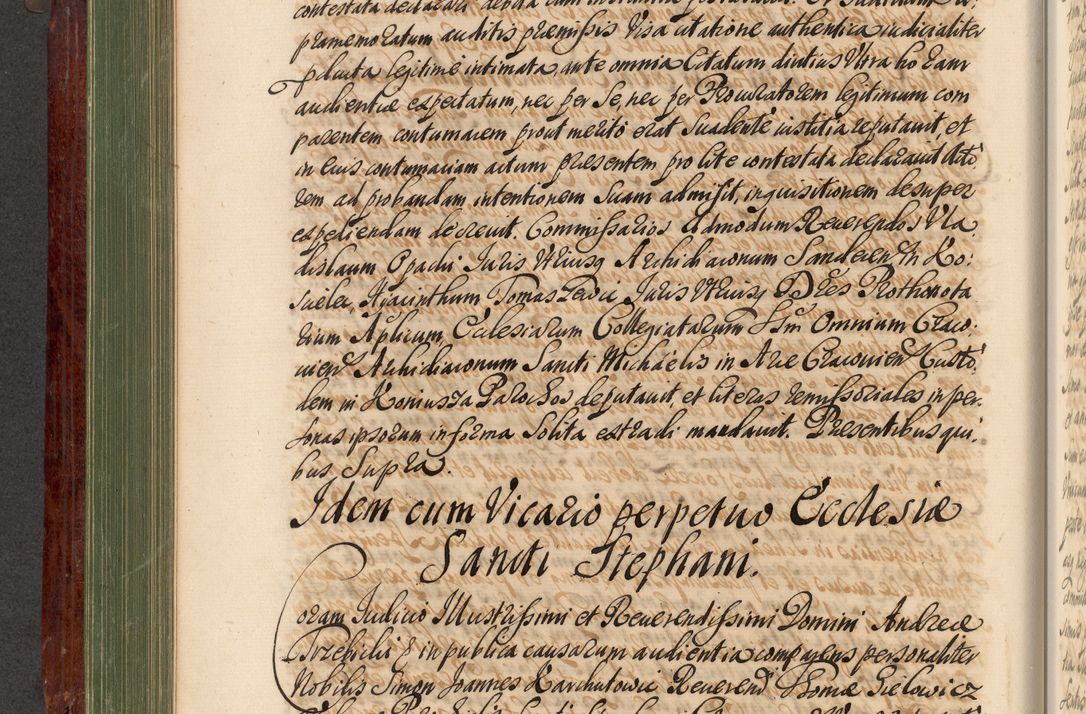 pramemoratum auditis præmissis Visa citatione authentica iudicialiter
p ducta legitime intimata, ante omnia Citatum diutius Ultra horam
audientiæ expectatum, nec per Se, nec per Procuratorem legitimum com
parentem contumacem, prout merito erat Suadente iustitia reputauit, et
in eius contumaciam actum presentem pro lite contestata declarauit Acto
rem ad probandam intentionem Suam admisit, inquisitionem desuper
expediendam decreuit. Commissarios Admodum Reuerendos Vla
dislaum Opacki Juris Utriusq Archidiaconum Sandecen et in Ko:
scielec, Hyacinthum Tomaszewic Juris Utriusq Dres Prothonota
rium Aplicum, Ecclesiarum Collegiatarum SSm Omnium Craco:
uien Archidiaconum Sancti Michaelis in Arce Cracouien Custo
dem in Koniusza Parochos deputauit, et literas remissoriales in per
sonas ipsorum in forma Solita extradi mandauit. Presentibus qui,
bus Supra.
Idem cum Vicario perpetuo Ecclesiæ
Sancti Stephani.
Coram Iudicio Illustrissimi et Reuerendissimi Domini Andreæ
Trzebicki in publica causarum audientia comparens personaliter
Nobilis Simon Joannes Karchutowic Reuerend Thomæ Gielowicz